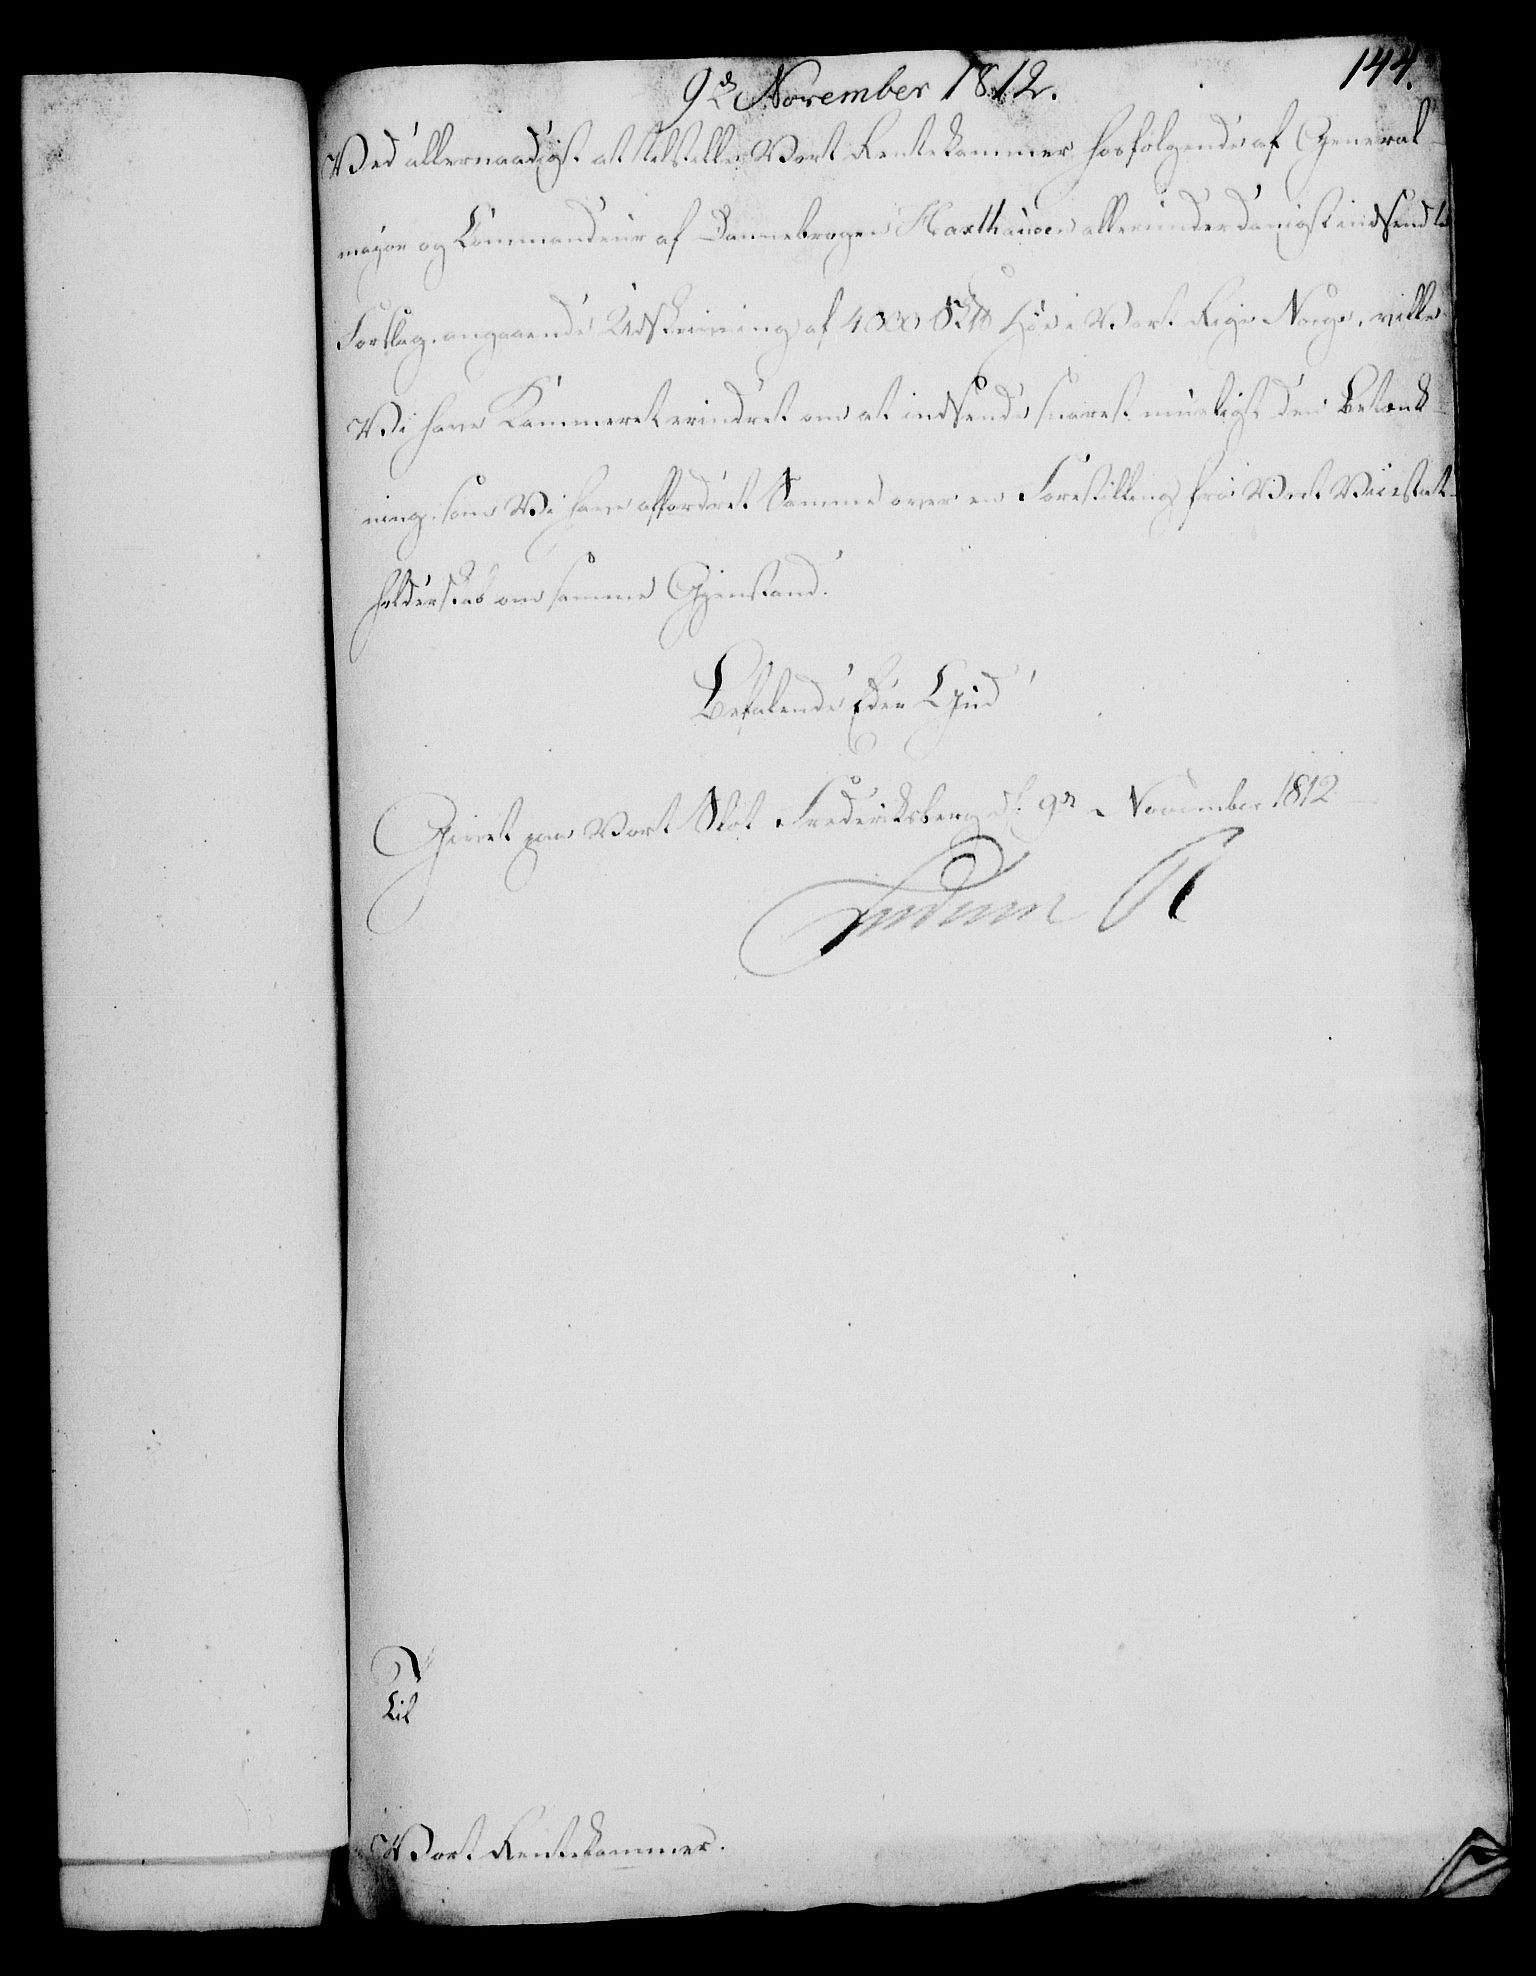 9de November 1812.
144.
Ved allernaadigst at tilstille Vort Rentekammer hosfølgende af General-
major og Commandeur af Dannebrogen Haxthausen allerunderdanigst indsendte
Forslag angaaende Udskrivning af 4000 Høe i Vort Rige Norge, ville
Vi have Kammeret erindret om at indsende snarest mueligst den Betænk-
ning, som Vi have affordret Samme over en Forestilling fra Vort Vicestat-
holderskab om samme Gjenstand.
Befalende Eder Gud
Givet paa Vort Slot Frederiksberg d. 9de November 1812
Frederik R
Til
Vort Rentekammer.